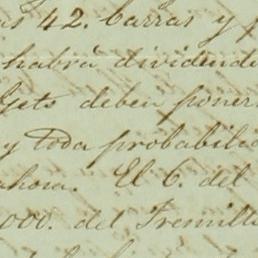 as 42. barras y
habrá dividend
gets deben poner
y toda probabili
ahora. El 6. del
000. del Tremill